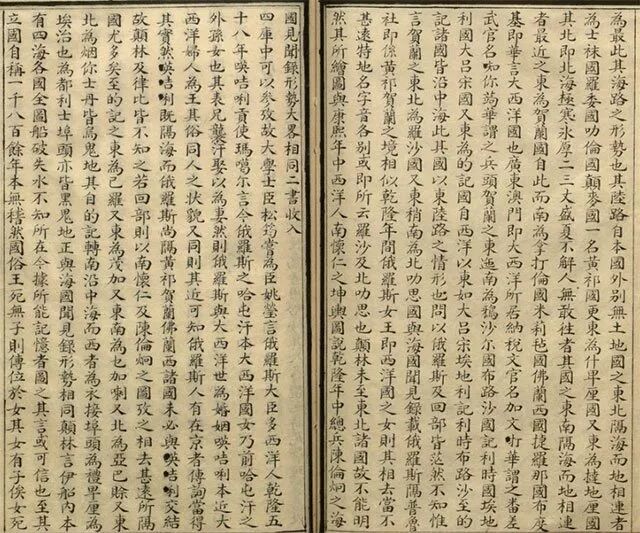 為最此其海之形勢也其陸路自本國外別無土地國之東北隔海而地相連者
為士袜國羅委國叻倫國顛麥國一名黄祁國更東為什畢厘國又東為撻地厘國
其北即北海極寒氷厚二三丈盛夏不解人無敢徃者其國之東南隔海而地相連
者最近之東為賀蘭國自此而南為拿打倫國米利毡國佛蘭西國捷羅那國布度
基即華言大西洋國也廣東澳門即大西洋所居納稅文官名加文吖華謂之番差
武官名咖你端華謂之兵頭賀蘭之東迤南為槁沙尔國布路沙國記利時國埃地
利國大吕宋國又東為的記國自西洋以東如大吕宋埃地利記利時布路沙至的
記諸國皆沿中海此其國以東陸路之情形也問以俄羅斯及回部皆茫然不知惟
言賀蘭之東北為羅沙國又東稍南為北叻思國與海國聞見錄載俄羅斯隔普魯
社即係黄祁賀蘭之境相似乾隆年間俄羅斯女王即西洋國之女則其相去當不
甚遠特地名字音各别或即所云羅沙及北叻思也顛林未至東北諸國故不能明
然其所繪圖與康熙年中西洋人南懷仁之坤輿圖說乾隆年中總兵陳倫炯之海
國見聞錄形勢大畧相同二書收入
四庫中可以叅攷故大學士臣松筠嘗為臣姚瑩言俄羅斯大臣多西洋人乾隆五
十八年𠸄咭唎貢使瑪噶尔言今俄羅斯之哈屯汗本大西洋國女乃前哈屯汗之
外孫女也其表兄襲汗娶以為妻然則俄羅斯與大西洋世為婚姻𠸄咭唎本近大
西洋婦人為王其俗同人之狀貌又同則其近可知俄羅斯人有在京者傳詢當得
其實然𠸄咭唎既隔海而俄羅斯尚隔黄祁賀蘭佛蘭西諸國未必與𠸄咭唎交結
故顛林及律比皆不知之若回部則以南懷仁及陳倫炯之圖攷之相去甚遠所隔
國尤多矣至的記之東為已羅又東為茂加又東南為乜加喇又北為亞巳賖又東
北為烟你士丹皆烏鬼地其自的記轉南沿中海而西者為衣接埠頭為禮畢厘為
埃治也為都利士埠頭亦皆黑鬼地正與海國聞見錄形勢相同顛林言伊船內本
有四海各國全圖船破失水不知所在今據所能記憶者圖之其言或可信也至其
立國自稱一千八百餘年本無稽然國俗王死無子則傳位於女其女有子俟女死